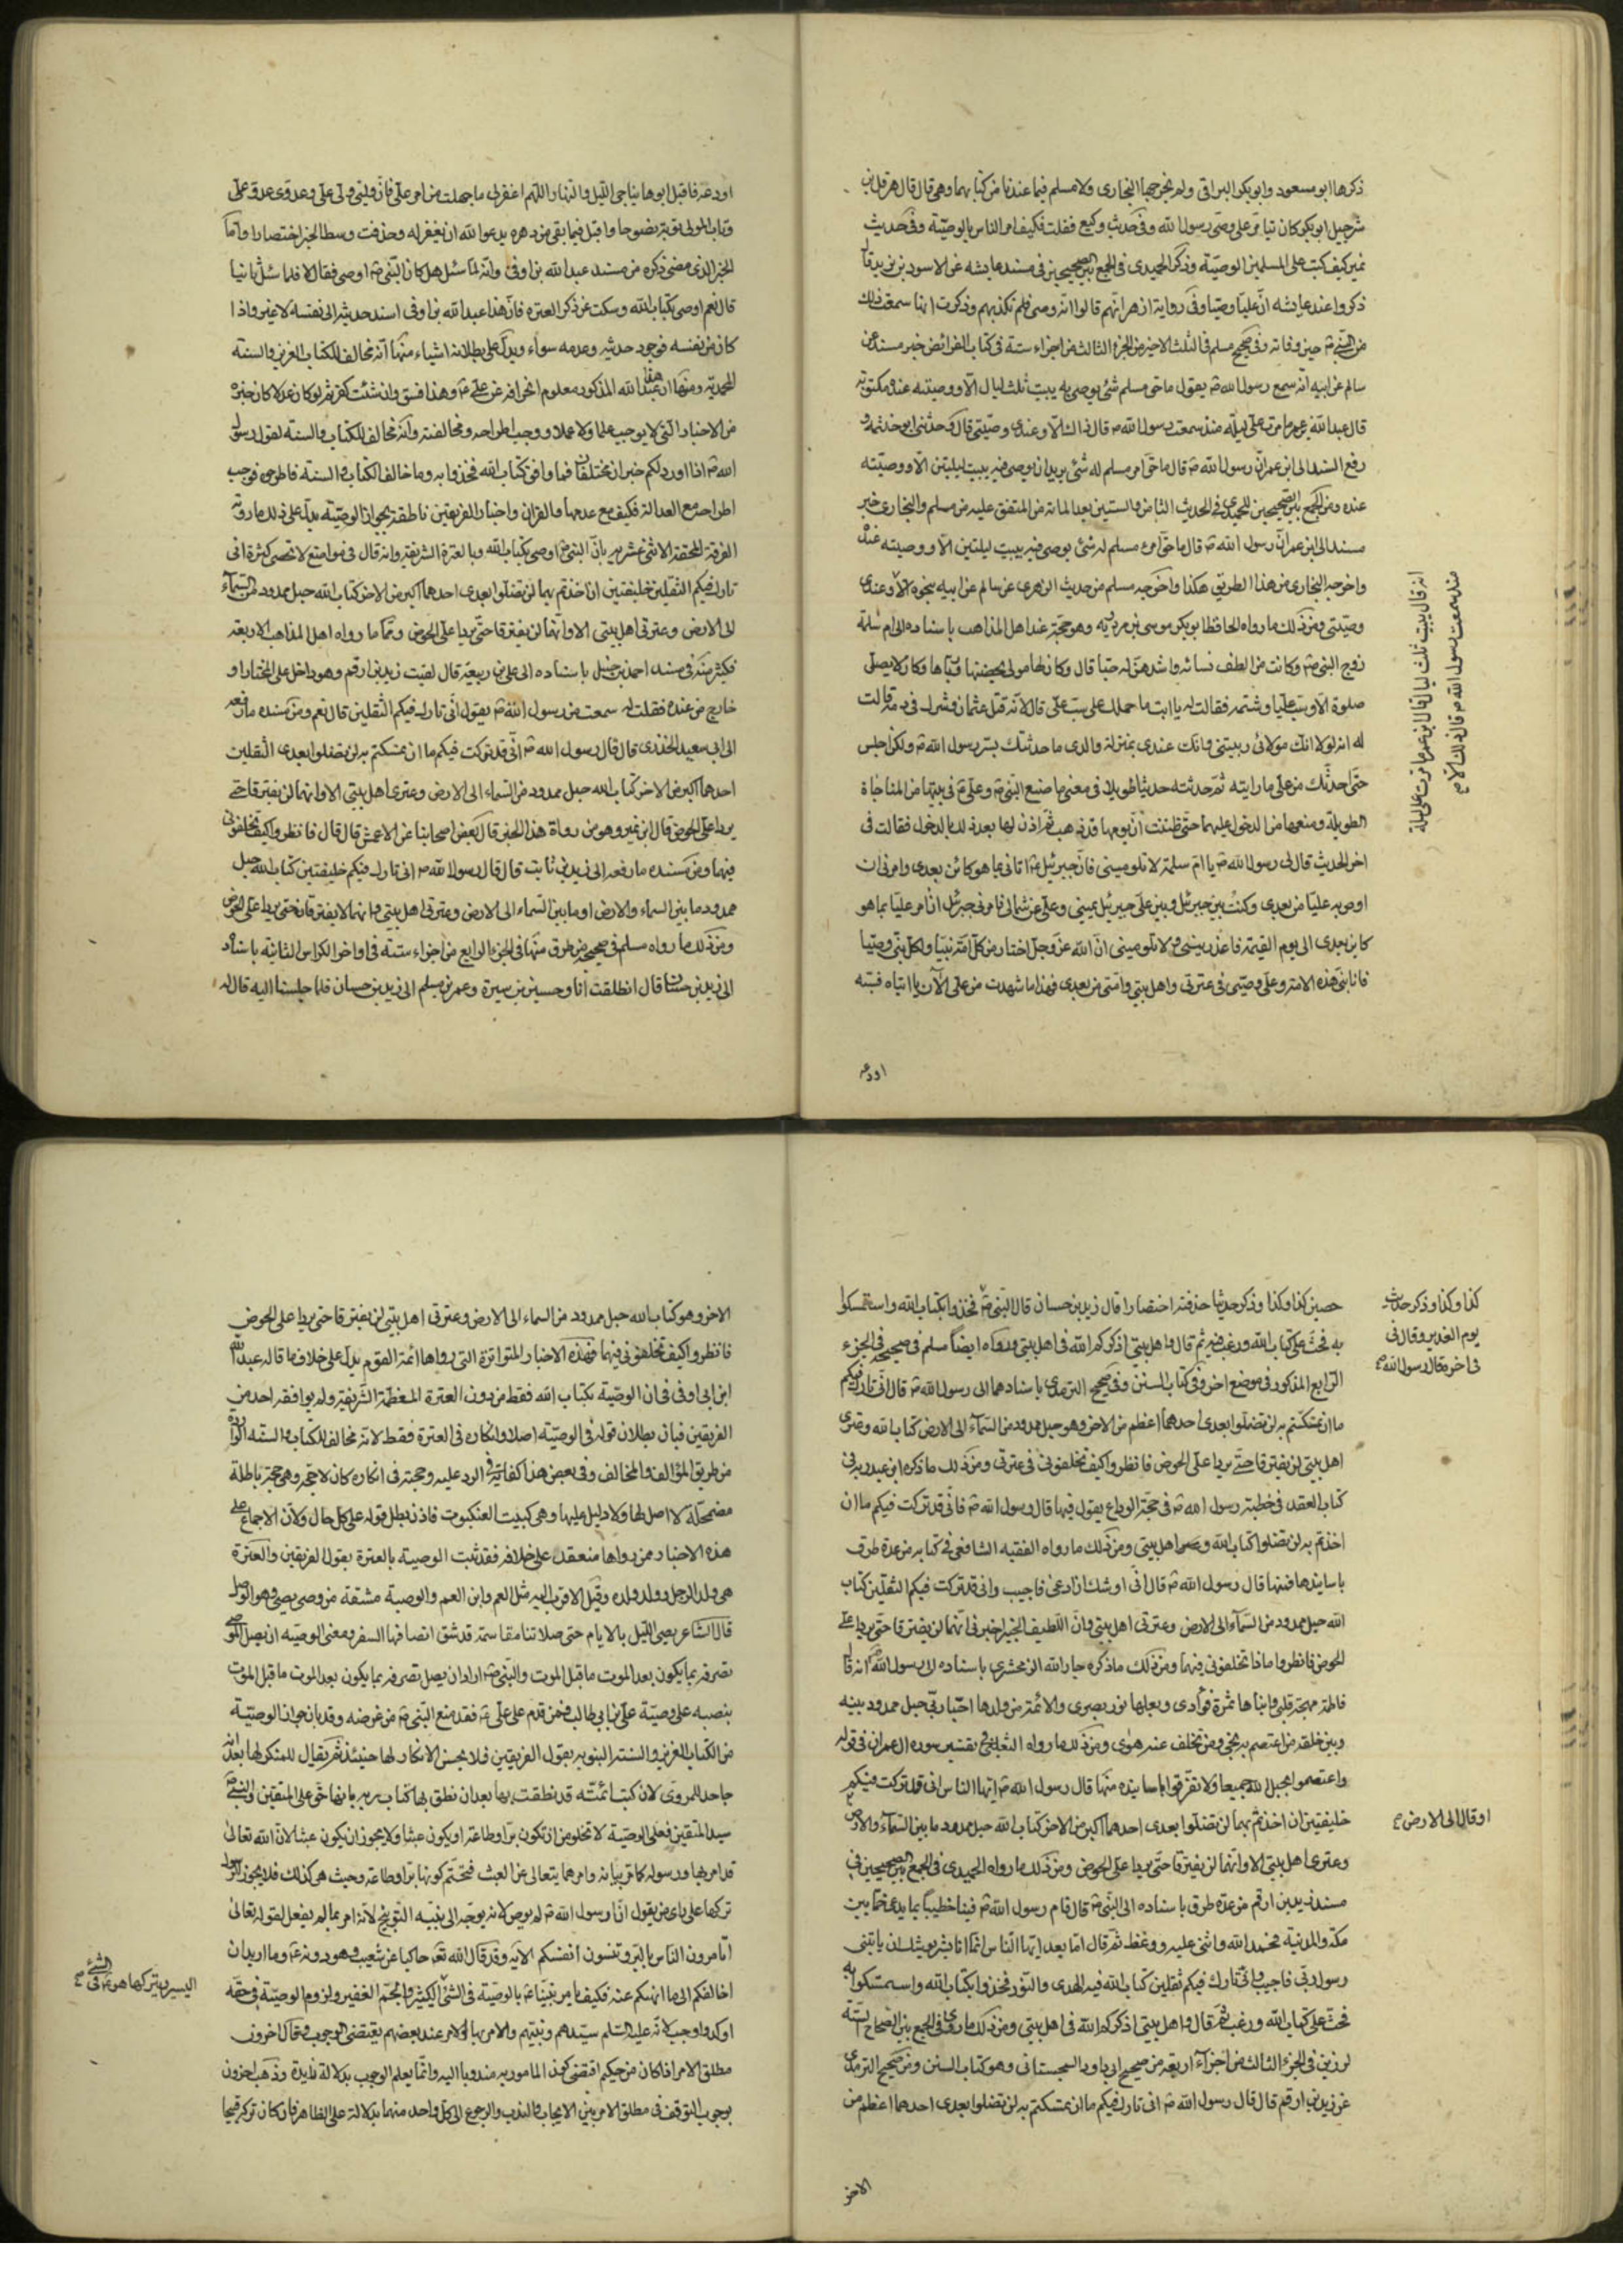 ذكرها ابو مسعود وابو بكر البراقى ولم يخرجها البخارى ولا مسلم فيما عندنا من كتابهما وهى قال قال هرقل بن
شرحبيل ابو بكر كان تيامر على وصى رسول الله وفى حديث وكيع فقلت فكيف امر الناس بالوصيّة وفى حديث
نمير كيف كتب على المسلمين الوصيّة وذكر الحميدى فى الجمع بين الصحيحين فى مسند عايشه عن الاسود بن يزيد قال
ذكروا عند عايشه انّ عليّا وصيا وفى رواية ازهر انّهم قالوا انّه وصى فلم تكذبهم وذكرت انها سمعت ذلك
من النبى ص حين وفاته وفى صحيح مسلم فى الثلث الاخير من الجزء الثالث من اجزاء ستة فى كتاب الفرائض خبر مسند عن
سالم عن ابيه انّه سمع رسول الله ص يقول ما حق مسلم شئ يوصى به يبيت ثلث ليال الّا ووصيته عنده مكتوبة
قال عبد الله بن عمر ما مرت على ليلة منذ سمعت رسول الله ص قال ذلك الّا وعندى وصيّتى قال وحدثنى ابو خثيمه و
رفع السند الى ابن عمر انّ رسول الله ص قال ما حق امرء مسلم له شئ يريد ان يوصى فيه يبيت ليلتين الّا ووصيّته
عنده ومن الجمع بين الصحيحين للحميدى فى الحديث الثامن والستين بعد المائة من المتفق عليه من مسلم والبخارى خبر
مسند الى ابن عمر انّ رسول الله ص قال ما حق امرء مسلم له شئ يوصى فيه يبيت ليلتين الّا ووصيته عنده
واخرجه البخارى من هذا الطريق هكذا واخرجه مسلم من حديث الزهرى عن سالم عن ابيه بنحوه الّا وعندى
وصيّتى ومن ذلك ما رواه الحافظ ابو بكر موسى بن مردويه وهو حجّة عند اهل المذاهب باسناده الى ام سلمة
زوج النبى ص وكانت من الطف نسائه واشدهنّ له حبّا قال وكان لها مولى يحضنها وربّاها وكان لا يصلى
صلوة الّا وسبّ عليا وشتمه فقالت له يا ابت ما حملك على سبّ على قال لانّه قتل عثمان وشرك فى دمه قالت
له انه لولا انّك مولائى وربيتنى وانك عندى بمنزلة والدى ما حدثتك بسرّ رسول الله ص ولكن اجلس
حتّى احدّثك عن على ما رايته ثمّ حدثته حديثا طويلا فى معنى ما صنع النّبى ص وعلى ع فى بيتها من المناجاة
الطويلة ومنعها من الدخول عليهما حتى ظننت انّ يومها قد ذهب ثمّ اذن لها بعد ذلك بالدخول فقالت فى
اخر الحديث قال لى رسول الله ص يا ام سلمة لا تلومينى فانّ جبرئيل ع اتانى بما هو كائن بعدى وامرنى ان
اوصى به عليّا من بعدى وكنت بين جبرئيل وبين على جبرئيل بيمينى وعلى عن شمالى فامرنى جبرئيل ان امر عليّا بما هو
كاين بعدى الى يوم القيمة فاعذرينى ولا تلومينى انّ الله عزّ وجلّ اختار من كلّ امّة نبيّا ولكلّ نبىّ وصيّا
فانا نبى هذه الامة وعلى وصيّى فى عترتى واهل بيتى وامّتى من بعدى فهذا ما شهدت من على الآن يا ابتاه فسبّه
اودعه
انه قال يبيت ثلث ليال قال ابن عمر ما مرت على ليلة
منذ سمعت رسول الله ص قال ذلك الّا
اودعه فاقبل ابوها يناجى الليل والنهار اللهم اغفر لى ما جهلت من امر على فانّ وليّى ولىّ على وعدوّى عدوّ على
وتاب المولى توبة نصوحا واقبل فيما بقى من دهره يدعو الله ان يغفر له وحذفت وسط الخبر اختصارا وامّا
الخبر الذى مضى ذكره من مسند عبد الله بن اوفى وانّه لمّا سئل هل كان النّبى ص اوصى فقال لا فلمّا سئل ثانيا
قال نعم اوصى بكتاب الله وسكت عن ذكر العترة فانّ هذا عبد الله بن اوفى اسند حديثه الى نفسه لا غير واذا
كان من نفسه فوجود حديثه وعدمه سواء ويدلّ على بطلانه اشياء منها انّه مخالف للكتاب العزيز والسنة
المحمديّة ومنها ان عبد الله هذا المذكور معلوم انحرافه عن على ع وهذا فسق وان شئت كفر ثم لو كان عدلا كان خبره
من الاخبار التى لا يوجب علما ولا عملا ووجب اطراحه ومخالفته وانّه مخالف للكتاب والسنة لقول رسول
الله ص اذا اورد لكم خبران مختلفان فما وافق كتاب الله فخذوا به وما خالف الكتاب والسنة فاطرحوه فوجب
اطراحه مع العدالة فكيف مع عدمها والقران واخبار الفريقين ناطقة بجواز الوصيّة يدلّ على ذلك ما روته
الفرقة المحقة الاثنى عشرية بانّ النبى ص اوصى بكتاب الله وبالعترة الشريفة وانه قال فى مواضع لا تحصى كثرة انى
تارك فيكم الثقلين خليفتين ان اخذتم بهما لن تضلّوا بعدى احدهما اكبر من الاخر كتاب الله حبل ممدود من السّماء
الى الارض وعترتى اهل بيتى الا وانّهما لن يفترقا حتّى يردا على الحوض وممّا ما رواه اهل المذاهب الاربعة
فكثير منه فى مسند احمد بن حنبل باسناده الى على بن ربيعة قال لقيت زيد بن ارقم وهو داخل على المختار او
خارج من عنده فقلت له سمعت من رسول الله ص يقول انّى تارك فيكم الثقلين قال نعم ومن مسنده ما رفعه
الى ابى سعيد الخدرى قال قال رسول الله ص انّى قد تركت فيكم ما ان تمسكتم به لن تضلوا بعدى الثقلين
احدهما اكبر من الاخر كتاب الله حبل ممدود من السّماء الى الارض وعترتى اهل بيتى الا وانهما لن يفترقا حتى
يردا على الحوض قال ابن نمير وهو من رواة هذا الخبر قال بعض اصحابنا عن الاعمش قال قال فانظروا كيف تخلفونى
فيهما ومن مسنده ما رفعه الى زيد بن ثابت قال قال رسول الله ص انى تارك فيكم خليفتين كتاب الله حبل
ممدود ما بين السماء والارض او ما بين السّماء الى الارض وعترتى اهل بيتى وانهما لا يفترقان حتى يردا على الحوض
ومن ذلك ما رواه مسلم فى صحيحه من طرق منها فى الجزء الرابع من اجزاء ستة فى اواخر الكراس الثانية باسناده
الى زيد بن حسان قال انطلقت انا وحسين بن سبرة وعمر بن مسلم الى زيد بن حسان فلما جلسنا اليه قال له
حصين كذا وكذا وذكر حديثا حذفته اختصارا قال زيد بن حسان قال النّبى ص فخذوا بكتاب الله واستمسكوا
به فحثّ على كتاب الله ورغب فيه ثم قال واهل بيتى اذكركم الله فى اهل بيتى ورواه ايضا مسلم فى صحيحه فى الجزء
الرّابع المذكور فى موضع اخر وفى كتاب السنن وفى صحيح الترمذى باسنادهما الى رسول الله ص قال انّى تارك فيكم
ما ان تمسّكتم به لن تضلّوا بعدى احدهما اعظم من الاخر وهو حبل ممدود من السّماء الى الارض كتاب الله وعترتى
اهل بيتى لن يفترقا حتّى يردا علىّ الحوض فانظروا كيف تخلفونى فى عترتى ومن ذلك ما ذكره ابن عبد ربه فى
كتاب العقد فى خطبة رسول الله ص فى حجّة الوداع يقول فيها قال رسول الله ص فانّى قد تركت فيكم ما ان
اخذتم به لن تضلوا كتاب الله وعترتى اهل بيتى ومن ذلك ما رواه الفقيه الشافعى فى كتابه من عدة طرق
باسانيدها فمنها قال رسول الله ص قال انّى اوشك ان ادعى فاجيب وانى قد تركت فيكم الثقلين كتاب
الله حبل ممدود من السّماء الى الارض وعترتى اهل بيتى وانّ اللّطيف الخبير اخبرنى انّهما لن يفترقا حتّى يردا على
الحوض فانظروا ماذا تخلفونى فيهما ومن ذلك ما ذكره جار الله الزمخشرى باسناده الى رسول الله ص انه قال
فاطمة مهجة قلبى وابناها ثمرة فؤادى وبعلها نور بصرى والائمّة من ولدها احبّاء ربّى حبل ممدود بينه
وبين خلقه من اعتصم به نجى ومن تخلف عنه هوى ومن ذلك ما رواه الثعلبى فى تفسير سورة ال عمران فى قوله
واعتصموا بحبل الله جميعا ولا تفرّقوا باسانيده منها قال رسول الله ص ايّها الناس انى قد تركت فيكم
خليفتين ان اخذتم بهما لن تضلّوا بعدى احدهما اكبر من الاخر كتاب الله حبل ممدود ما بين السّماء والارض
وعترتى اهل بيتى الا وانّهما لن يفترقا حتّى يردا على الحوض ومن ذلك ما رواه الحميدى فى الجمع بين الصحيحين فى
مسند زيد بن ارقم من عدّة طرق باسناده الى النّبى ص قال قام رسول الله ص فينا خطيبا بما يدعى خمّا بين
مكّة والمدينة فحمد الله واثنى عليه ووعظ ثمّ قال امّا بعد ايّها النّاس انّما انا بشر يوشك ان ياتينى
رسول ربّى فاجيب وانّى تارك فيكم ثقلين كتاب الله فيه الهدى والنّور فخذوا بكتاب الله واستمسكوا به
فحثّ على كتاب الله ورغب ثمّ قال واهل بيتى اذكركم الله فى اهل بيتى ومن ذلك ما روى فى الجمع بين الصحاح الستّة
لرزين فى الجزء الثالث من اجزاء اربعة من صحيح ابى داود السجستانى وهو كتاب السنن ومن صحيح الترمذى
عن زيد بن ارقم قال قال رسول الله ص انى تارك فيكم ما ان تمسكتم به لن تضلوا بعدى احدهما اعظم من
الاخر
كذا وكذا وذكر حديث
يوم الغدير وقال فى
فى اخره قال رسول الله ص
او قال الى الارض
الاخر وهو كتاب الله حبل ممدود من السماء الى الارض وعترتى اهل بيتى لن يفترقا حتى يردا على الحوض
فانظروا كيف تخلفونى فيهما فهذه الاخبار المتواترة التى رواها ائمة القوم يدلّ على خلاف ما قاله عبد الله
ابن ابى اوفى فى ان الوصيّة بكتاب الله فقط من دون العترة المعظمة الشريفة ولم يوافقه احد من
الفريقين فبان بطلان قوله فى الوصيّة اصلا وانكاره فى العترة فقط لانه مخالف للكتاب والسنّة الواردة
من طريق المؤالف والمخالف وفى بعض هذا كفاية فى الرد عليه وحجته فى انكاره كان لا حجّة وهى حجّة باطلة
مضمحلّة لا اصل لها ولا دليل عليها وهى كبيت العنكبوت فاذن بطل قوله على كل حال ولانّ الاجماع على
هذه الاخبار ممن رواها منعقد على خلافه فقد ثبت الوصية بالعترة بقول الفريقين والعترة
هى ولد الرجل وولد ولده وقيل الاقرب اليه مثل العم وابن العم والوصية مشتقة من وصى يصى وهو الوصل
قال الشاعر يصى الليل بالايام حتى صلاتنا مقاسمة قد شق انصافها السفر ومعنى الوصيّه ان يصل الموصى
تصرفه بما يكون بعد الموت ما قبل الموت والنّبى ص اراد ان يصل تصرفه بما يكون بعد الموت ما قبل الموت
بنصبه على وصيّة على بن ابى طالب فمن قدم على على ع فقد منع النّبى ص من غرضه وقد بان جواز الوصيّة
من الكتاب العزيز والسنة النبوية بقول الفريقين فلا يحسن الانكار لها حينئذ ثم يقال للمنكر لها بعد انه
جاحد للمروى لان كتب ائمتّه قد نطقت بها بعد ان نطق بها كتاب ربه بانها حق على المتقين والنبى ص
سيد المتقين فعلى الوصيّة لا تخلو من ان تكون برّا وطاعة او يكون عبثا ولا يجوز ان يكون عبثا لانّ الله تعالى
قد امر بها ورسوله كما مر بيانه وامرهما يتعالى عن العبث فتحتّم كونها برّا وطاعة وحيث هى كذلك فلا يجوز للرسول
تركها على راى من يقول انّ رسول الله ص لم يوص لانه يوجّه الى نبيّه التوبيخ لانّه امر بما لم يفعل لقوله تعالى
اتامرون الناس بالبرّ وتنسون انفسكم الايه وقد قال الله تع حاكيا عن شعيب وهو دونه ع وما اريد ان
اخالفكم الى ما انهيكم عنه فكيف يامر نبيّنا ع بالوصيّة فى الشئ الكثير والجمّ الغفير ولزوم الوصيّة فى حقّه
اوكد واوجب لانّه عليه السّلم سيّدهم ونبيّهم والامر بها والامر عند بعضهم يقتضى الوجوب وقال اخرون
مطلق الامر اذا كان من حكيم اقتضى كون المامور به مندوبا اليه وانّما يعلم الوجوب بدلالة زايدة وذهب اخرون
بوجوب التوقف فى مطلق الامر بين الايجاب والندب والرجوع الى كلّ واحد منهما بدلالة على الظاهر فان كان تركه قبيحا